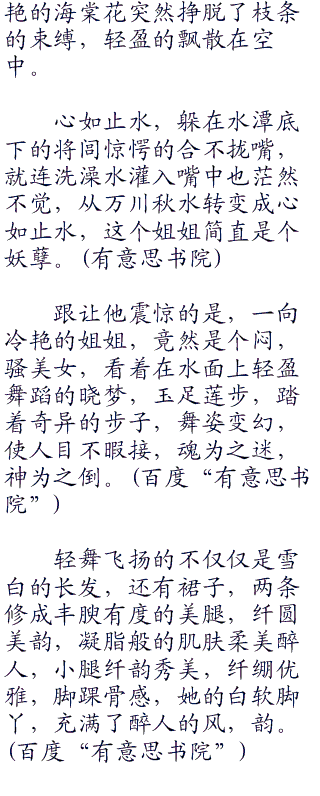 艳的海棠花突然挣脱了枝条
的束缚，轻盈的飘散在空
中。
心如止水，躲在水潭底
下的将闾惊愕的合不拢嘴，
就连洗澡水灌入嘴中也茫然
不觉，从万川秋水转变成心
如止水，这个姐姐简直是个
妖孽。(有意思书院)
跟让他震惊的是，一向
冷艳的姐姐，竟然是个闷，
骚美女，看着在水面上轻盈
舞蹈的晓梦，玉足莲步，踏
着奇异的步子，舞姿变幻，
使人目不暇接，魂为之迷，
神为之倒。(百度“有意思书
院”)
轻舞飞扬的不仅仅是雪
白的长发，还有裙子，两条
修成丰腴有度的美腿，纤圆
美韵，凝脂般的肌肤柔美醉
人，小腿纤韵秀美，纤绷优
雅，脚踝骨感，她的白软脚
丫，充满了醉人的风，韵。
(百度“有意思书院”)